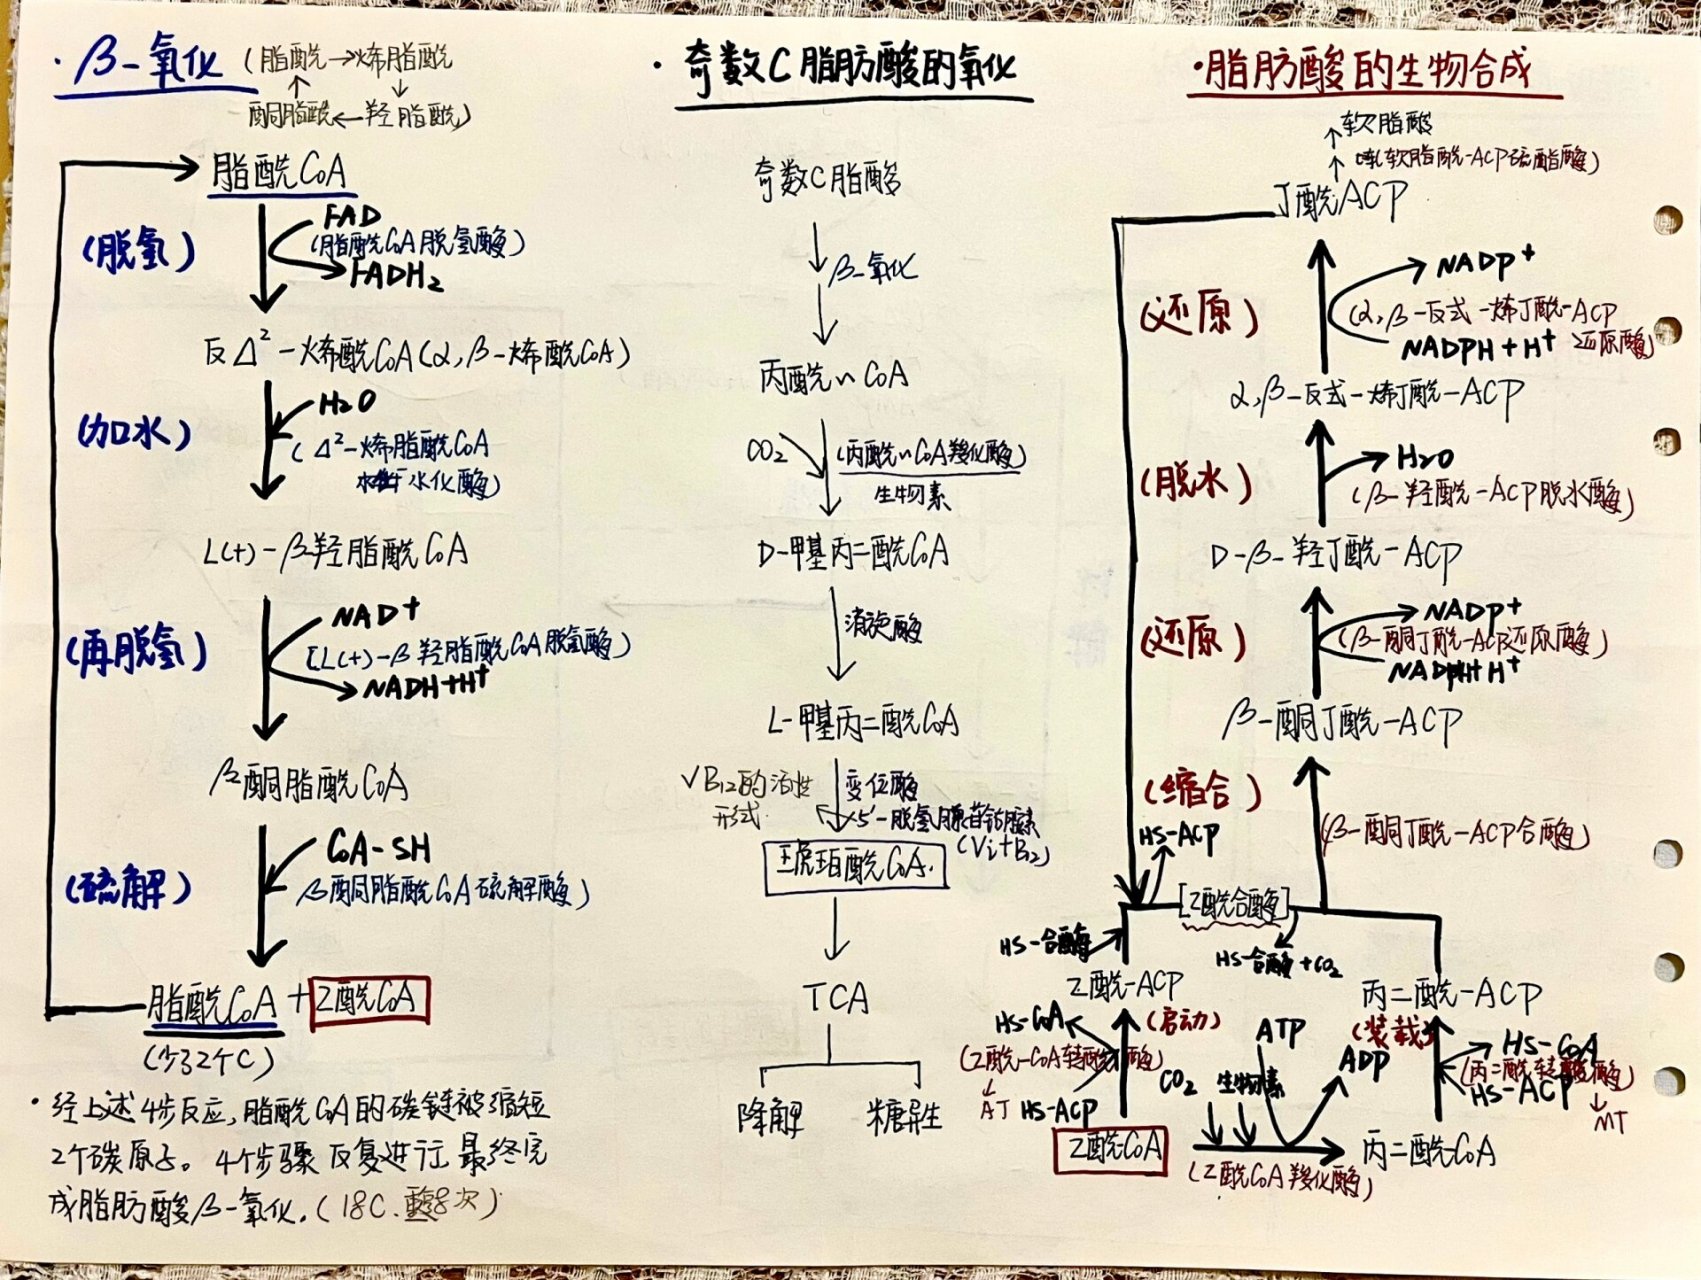 · β-氧化 (脂酰→烯脂酰
↑ ↓
酮脂酰←羟脂酰)
脂酰CoA
(脱氢)
FAD
(脂酰CoA脱氢酶)
FADH₂
反Δ²-烯酰CoA(α,β-烯酰CoA)
(加水)
H₂O
(Δ²-烯脂酰CoA
水化酶)
L(+)-β羟脂酰CoA
(再脱氢)
NAD⁺
[L(+)-β羟脂酰CoA脱氢酶)
NADH+H⁺
β酮脂酰CoA
(硫解)
CoA-SH
β酮脂酰CoA硫解酶)
脂酰CoA+乙酰CoA
(少32个C)
· 经上述4步反应,脂酰CoA的碳链被缩短
2个碳原子。4个步骤反复进行最终完
成脂肪酸β-氧化.(18C.重8次)
· 奇数C脂肪酸的氧化
奇数C脂酸
β-氧化
丙酰~CoA
CO₂
(丙酰~CoA羧化酶)
生物素
D-甲基丙二酰CoA
消旋酶
L-甲基丙二酰CoA
√B₁₂的活性
形式
变位酶
5'-脱氧腺苷钴胺素
(VitB₁₂)
琥珀酰CoA.
TCA
降解 糖异生
·脂肪酸的生物合成
↑软脂酸
↑ (软脂酰-ACP硫酯酶)
丁酰ACP
(还原)
NADP⁺
(α,β-反式-烯丁酰-ACP
还原酶)
NADPH+H⁺
α,β-反式-烯丁酰-ACP
(脱水)
H₂O
(β-羟酰-ACP脱水酶)
D-β-羟丁酰-ACP
(还原)
NADP⁺
(β-酮丁酰-ACP还原酶)
NADPH+H⁺
β-酮丁酰-ACP
(缩合)
HS-ACP
(β-酮丁酰-ACP合酶)
[乙酰合酶]
HS-合酶
HS-合酶+CO₂
乙酰-ACP
丙二酰-ACP
HS-CoA
(启动)
(乙酰-CoA转酰酶)
AT
HS-ACP
ATP
CO₂ 生物素
ADP
(装载)
HS-CoA
(丙二酰转酰酶)
HS-ACP
MT
乙酰CoA
丙二酰CoA
(乙酰CoA羧化酶)